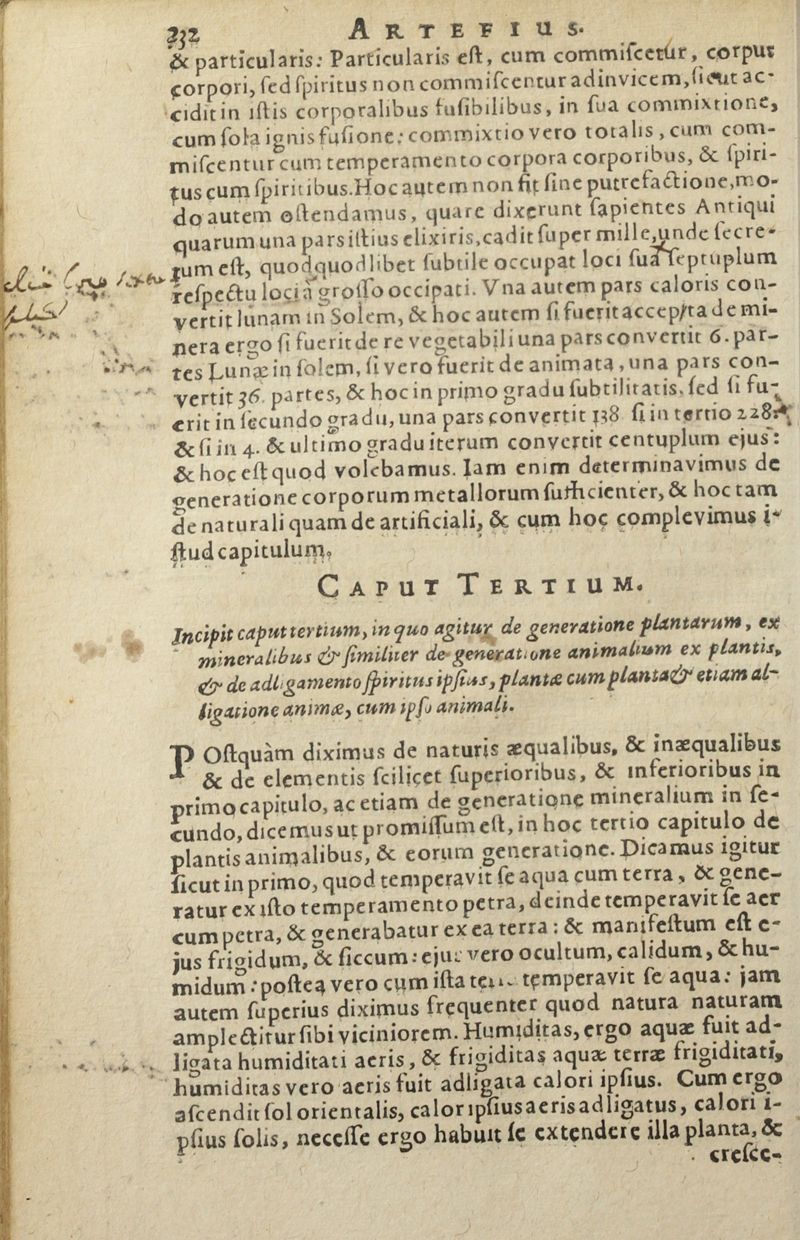 232 ARTEFIUS.
& particularis: Particularis eſt, cum commiſcetur, corpus
corpori, ſed ſpiritus non commiſcentur adinvicem, ſicut ac-
cidit in iſtis corporalibus fuſibilibus, in ſua commixtione,
cum ſola ignis fuſione: commixtio vero totalis, cum com-
miſcentur cum temperamento corpora corporibus, & ſpiri-
tus cum ſpiritibus. Hoc autem non fit ſine putrefactione, mo-
do autem oſtendamus, quare dixerunt ſapientes Antiqui
quarum una pars iſtius elixiris, cadit ſuper mille, unde ſecre-
tum eſt, quod quodlibet ſubtile occupat loci ſua ſeptuplum
reſpectu loci à groſſo occipati. Vna autem pars caloris con-
vertit lunam in Solem, & hoc autem ſi fuerit accepta de mi-
nera ergo ſi fuerit de re vegetabili una pars convertit 6. par-
tes Lunæ in ſolem, ſi vero fuerit de animata, una pars con-
vertit 36. partes, & hoc in primo gradu ſubtilitatis. ſed ſi fu-
erit in ſecundo gradu, una pars convertit 138 ſi in tertio 228.
& ſi in 4. & ultimo gradu iterum convertit centuplum ejus:
& hoc eſt quod volebamus. Iam enim determinavimus de
generatione corporum metallorum ſufficienter, & hoc tam
de naturali quam de artificiali, & cum hoc complevimus i-
ſtud capitulum.
CAPUT TERTIUM.
Incipit caput tertium, in quo agitur de generatione plantarum, ex
mineralibus & ſimiliter de generatione animalium ex plantis,
& de adligamento ſpiritus ipſius, plantæ cum planta & etiam al-
ligatione animæ, cum ipſo animali.
POſtquàm diximus de naturis æqualibus, & inæqualibus
& de elementis ſcilicet ſuperioribus, & inferioribus in
primo capitulo, ac etiam de generatione mineralium in ſe-
cundo, dicemus ut promiſſum eſt, in hoc tertio capitulo de
plantis animalibus, & eorum generatione. Dicamus igitur
ſicut in primo, quod temperavit ſe aqua cum terra, & gene-
ratur ex iſto temperamento petra, deinde temperavit ſe aer
cum petra, & generabatur ex ea terra: & manifeſtum eſt e-
jus frigidum, & ſiccum: ejus vero ocultum, calidum, & hu-
midum: poſtea vero cum iſta temperavit ſe aqua: jam
autem ſuperius diximus frequenter quod natura naturam
amplectitur ſibi viciniorem. Humiditas, ergo aquæ fuit ad-
ligata humiditati aeris, & frigiditas aquæ terræ frigiditati,
humiditas vero aeris fuit adligata calori ipſius. Cum ergo
aſcendit ſol orientalis, calor ipſius aeris adligatus, calori i-
pſius ſolis, neceſſe ergo habuit ſe extendere illa planta, &
creſce-